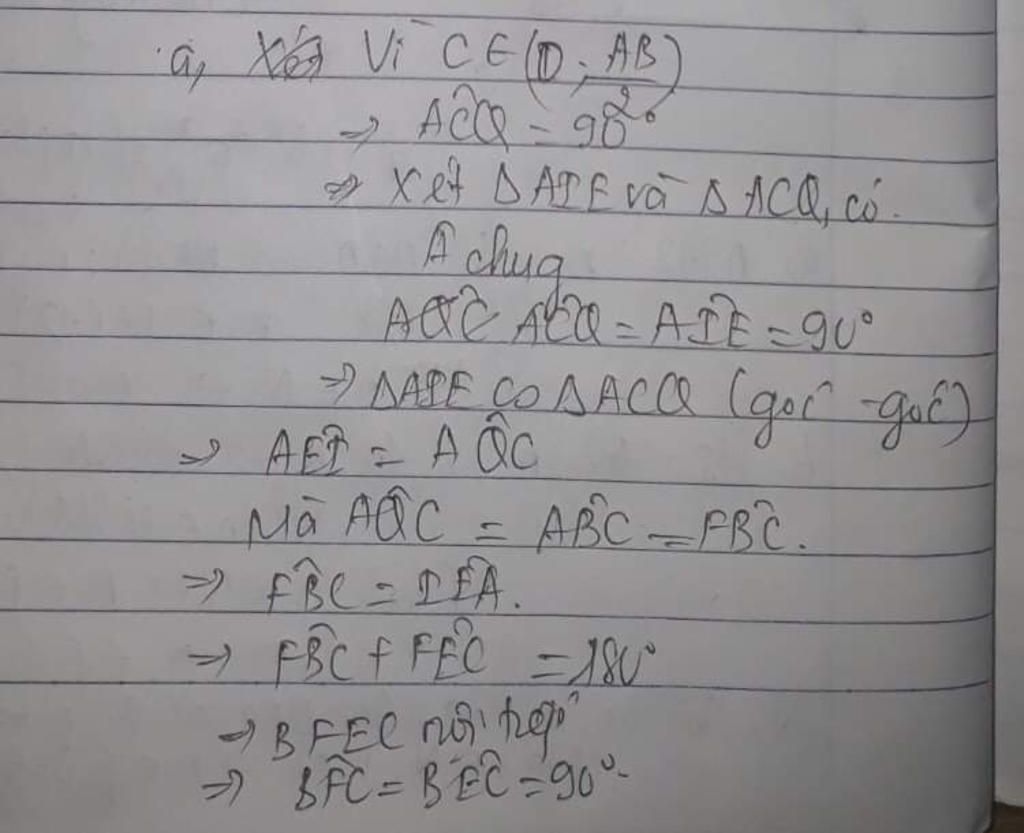 a, Vì C ∈ (O; AB/2)
⇒ AĈQ = 90°
⇒ Xét ΔAIE và ΔACQ, có.
Â chug
AQ̂C AĈQ = AÎE = 90°
⇒ ΔAIE ∽ ΔACQ (goc - goc)
⇒ AÊI = AQ̂C
Mà AQ̂C = AB̂C = FB̂C.
⇒ FB̂C = IÊA.
⇒ FB̂C + FÊC = 180°
⇒ BFEC nội tiếp
⇒ BF̂C = BÊC = 90°